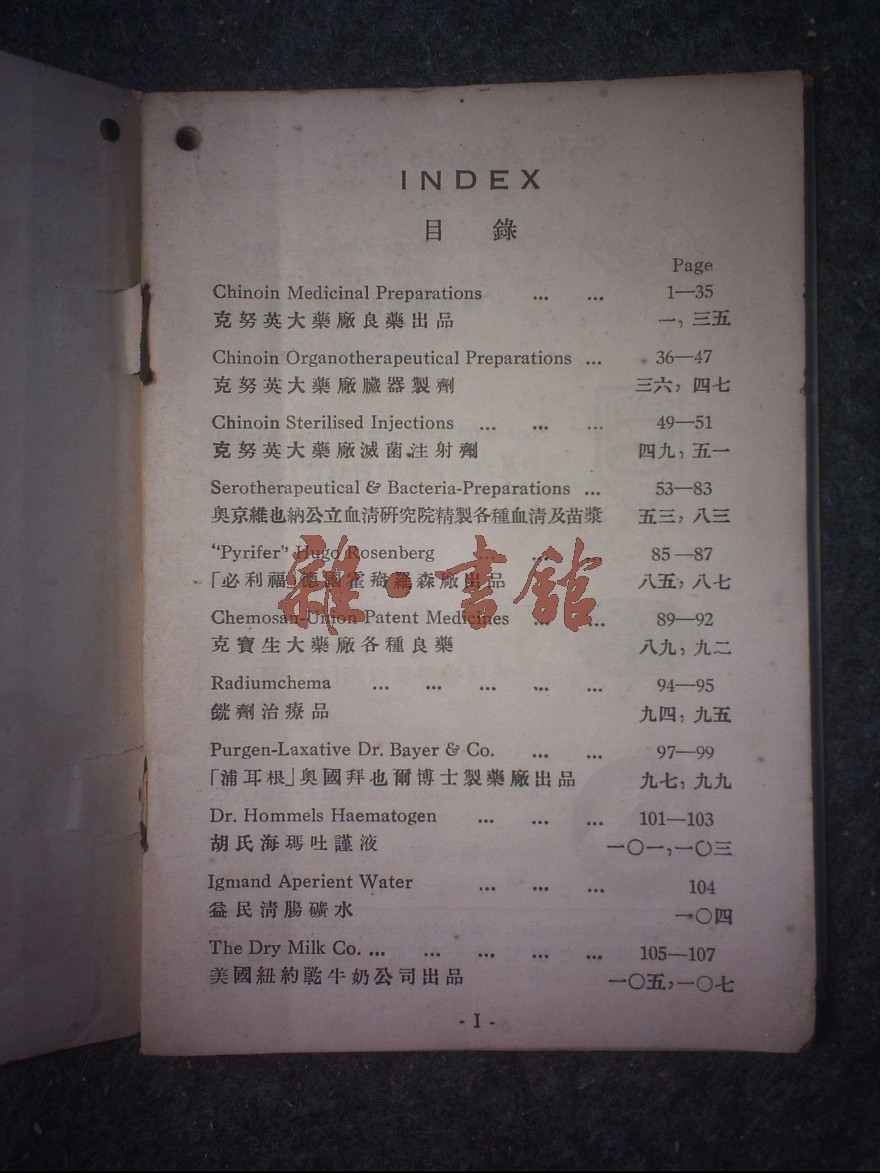 INDEX
目錄
Page
Chinoin Medicinal Preparations ... ... 1—35
克努英大藥廠良藥出品 一，三五
Chinoin Organotherapeutical Preparations ... 36—47
克努英大藥廠臟器製劑 三六，四七
Chinoin Sterilised Injections ... ... ... 49—51
克努英大藥廠滅菌注射劑 四九，五一
Serotherapeutical & Bacteria-Preparations ... 53—83
奥京維也納公立血清研究院精製各種血清及苗漿 五三，八三
"Pyrifer" Hugo Rosenberg ... ... ... 85—87
「必利福」德國霍猗羅森廠出品 八五，八七
Chemosan-Union Patent Medicines ... ... 89—92
克寶生大藥廠各種良藥 八九，九二
Radiumchema ... ... ... ... ... 94—95
銧劑治療品 九四，九五
Purgen-Laxative Dr. Bayer & Co. ... ... 97—99
「浦耳根」奥國拜也爾博士製藥廠出品 九七，九九
Dr. Hommels Haematogen ... ... ... 101—103
胡氏海瑪吐謹液 一〇一，一〇三
Igmand Aperient Water ... ... ... 104
益民清腸礦水 一〇四
The Dry Milk Co. ... ... ... ... ... 105—107
美國紐約乾牛奶公司出品 一〇五，一〇七
- I -
雜·書館